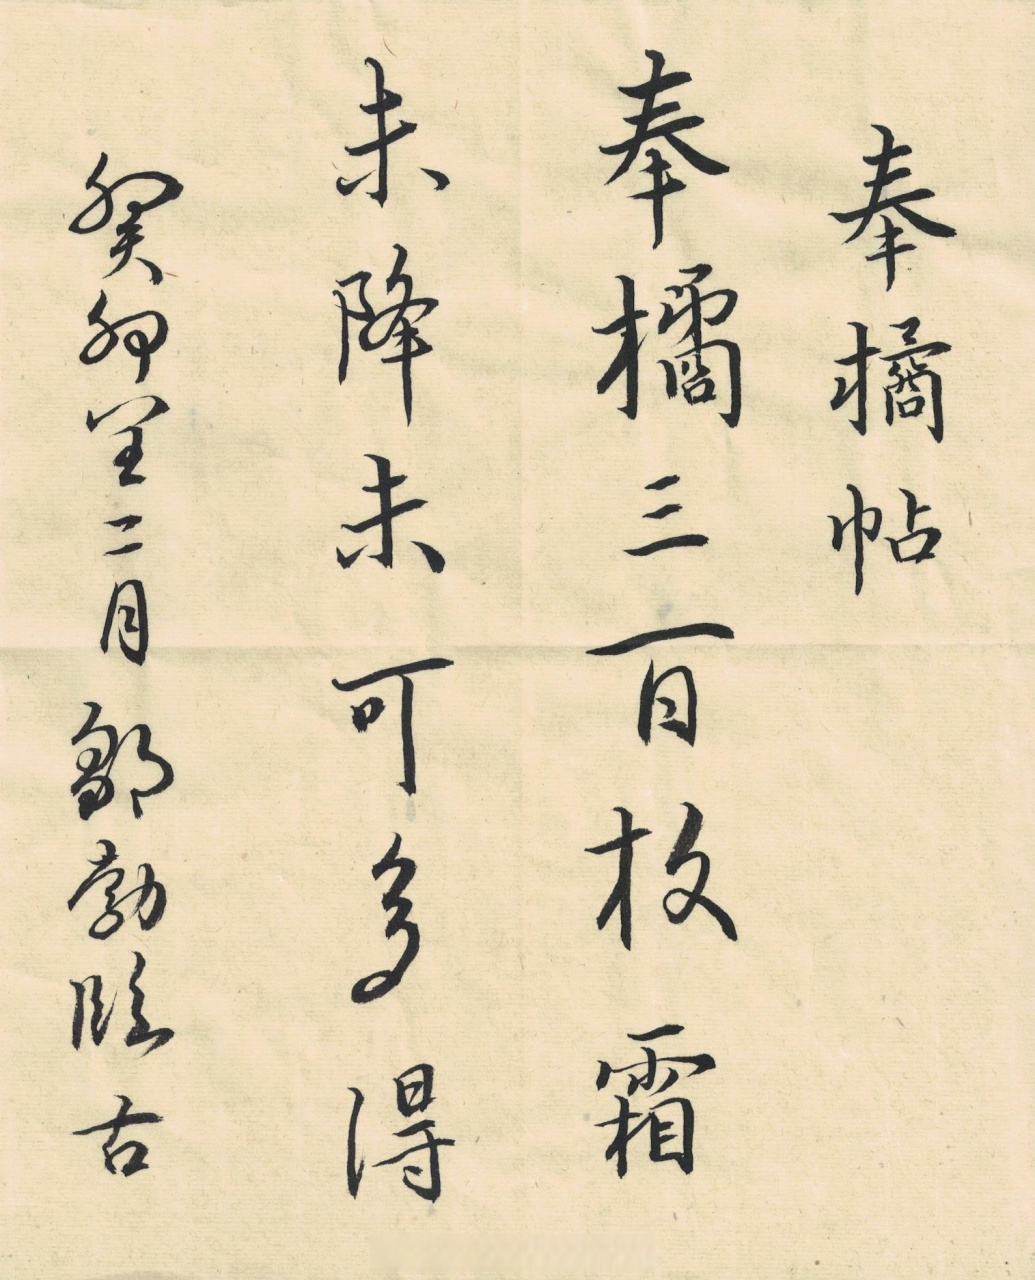 奉橘帖
奉橘三百枚霜
未降未可多得
癸卯閏二月 鄒勃臨古